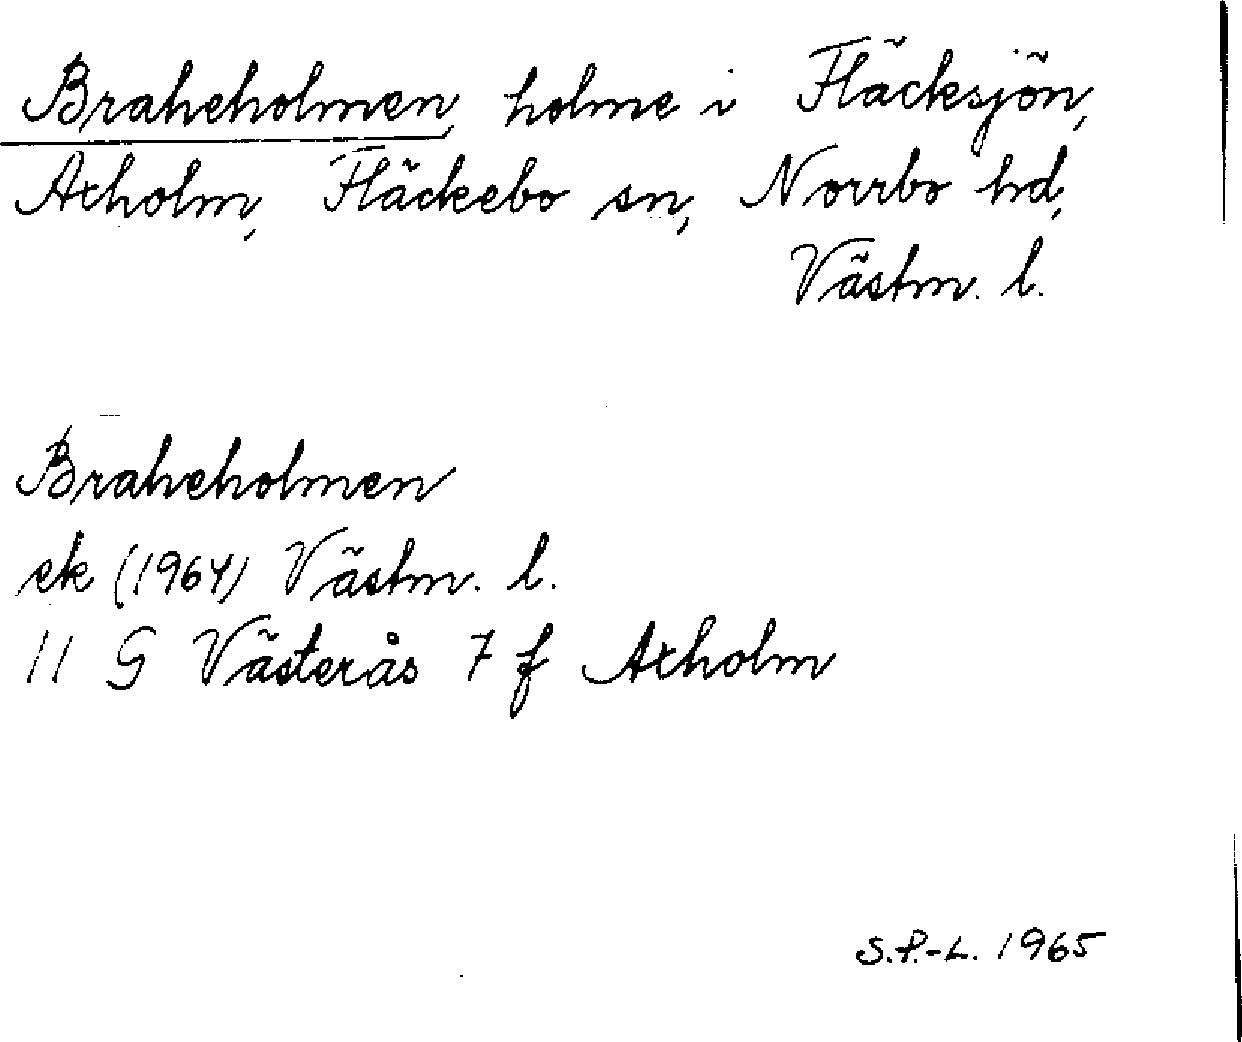 Braheholmen, holme i Fläcksjön,
Axholm, Fläckebo sn, Norrbo hd,
Västm. l.
Braheholmen
ek (1964) Västm. l.
11 G Västerås 7 f Axholm
S.P.-L. 1965